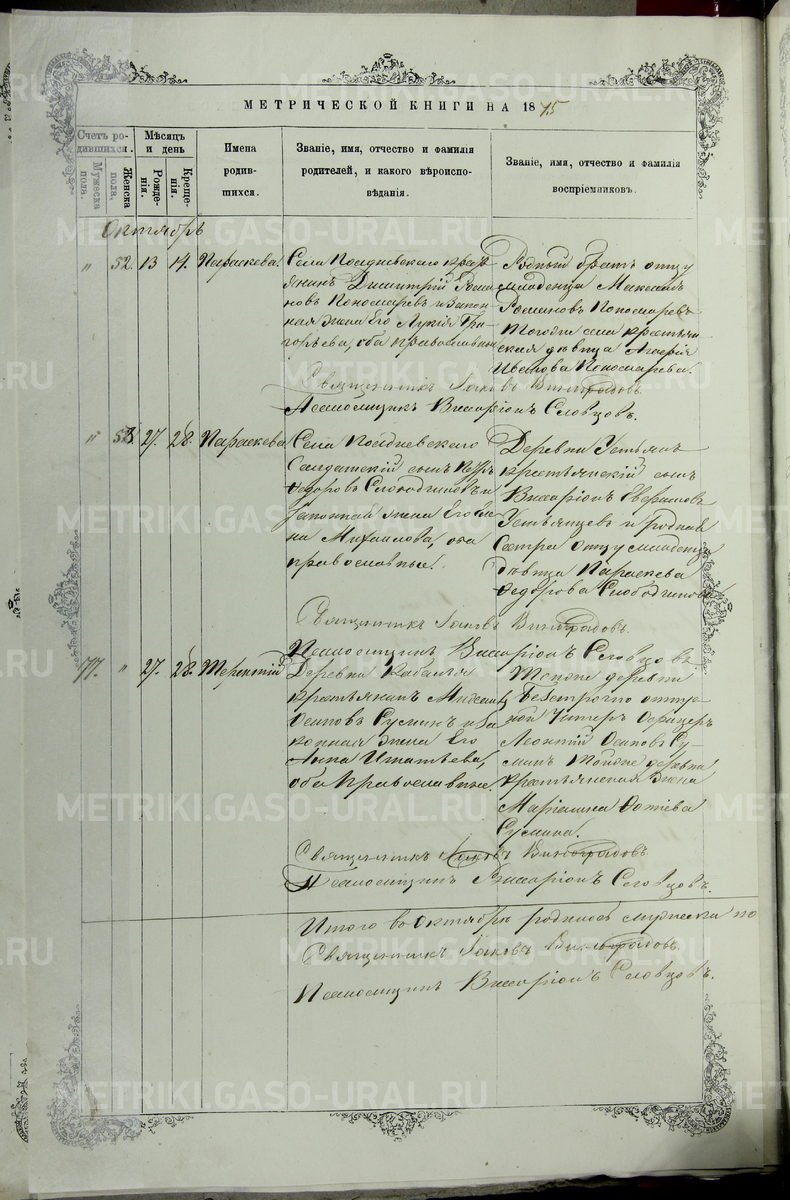 МЕТРИЧЕСКОЙ КНИГИ НА 1875
Счетъ ро-
дившихся.
Мужеска
пола.
Женска
пола.
Мѣсяцъ
и день
Рожде-
нія.
Креще-
нія.
Имена
родив-
шихся.
Званіе, имя, отчество и фамилія
родителей, и какого вѣроиспо-
вѣданія.
Званіе, имя, отчество и фамилія
воспріемниковъ.
Октябрь
" 52. 13 14. Параскева.
Села
янинъ Димитрій Рома
новъ Пономаревъ и закон
ная жена его Лукія Гри
горьева, оба православные
Родный братъ отцу
младенца Максимъ
Романовъ Пономаревъ
Тогоже села крестьян
ская дѣвица
Иванова Пономарева.
Священникъ Іаковъ Виноградовъ.
Псаломщикъ Виссаріонъ Словцовъ.
" 53. 27. 28. Параскева
Села
Солдатскій сынъ Петръ
Федоровъ Слободчиковъ и
законная жена его
на Михайлова, оба
православные.
Деревни Устьянъ
крестьянскій сынъ
Виссаріонъ
Устьянцевъ и родная
сестра отцу младенца
дѣвица Параскева
Федорова Слободчикова
Священникъ Іаковъ Виноградовъ.
Псаломщикъ Виссаріонъ Словцовъ.
77. " 27. 28. Терентій
Деревни
крестьянинъ
Осиповъ Суминъ и за
конная жена его
Анна Игнатьева,
оба православные.
Тойже деревни
безсрочно отпу-
ной Унтеръ Офицеръ
Леонтій Осиповъ Су-
минъ тойже деревни
крестьянская жена
Маріамна Фотіева
Сумина.
Священникъ Іаковъ Виноградовъ
Псаломщикъ Виссаріонъ Словцовъ.
Итого въ Октябрѣ родилось мужеска по
Священникъ Іаковъ Виноградовъ.
Псаломщикъ Виссаріонъ Словцовъ.
METRIKI.GASO-URAL.RU